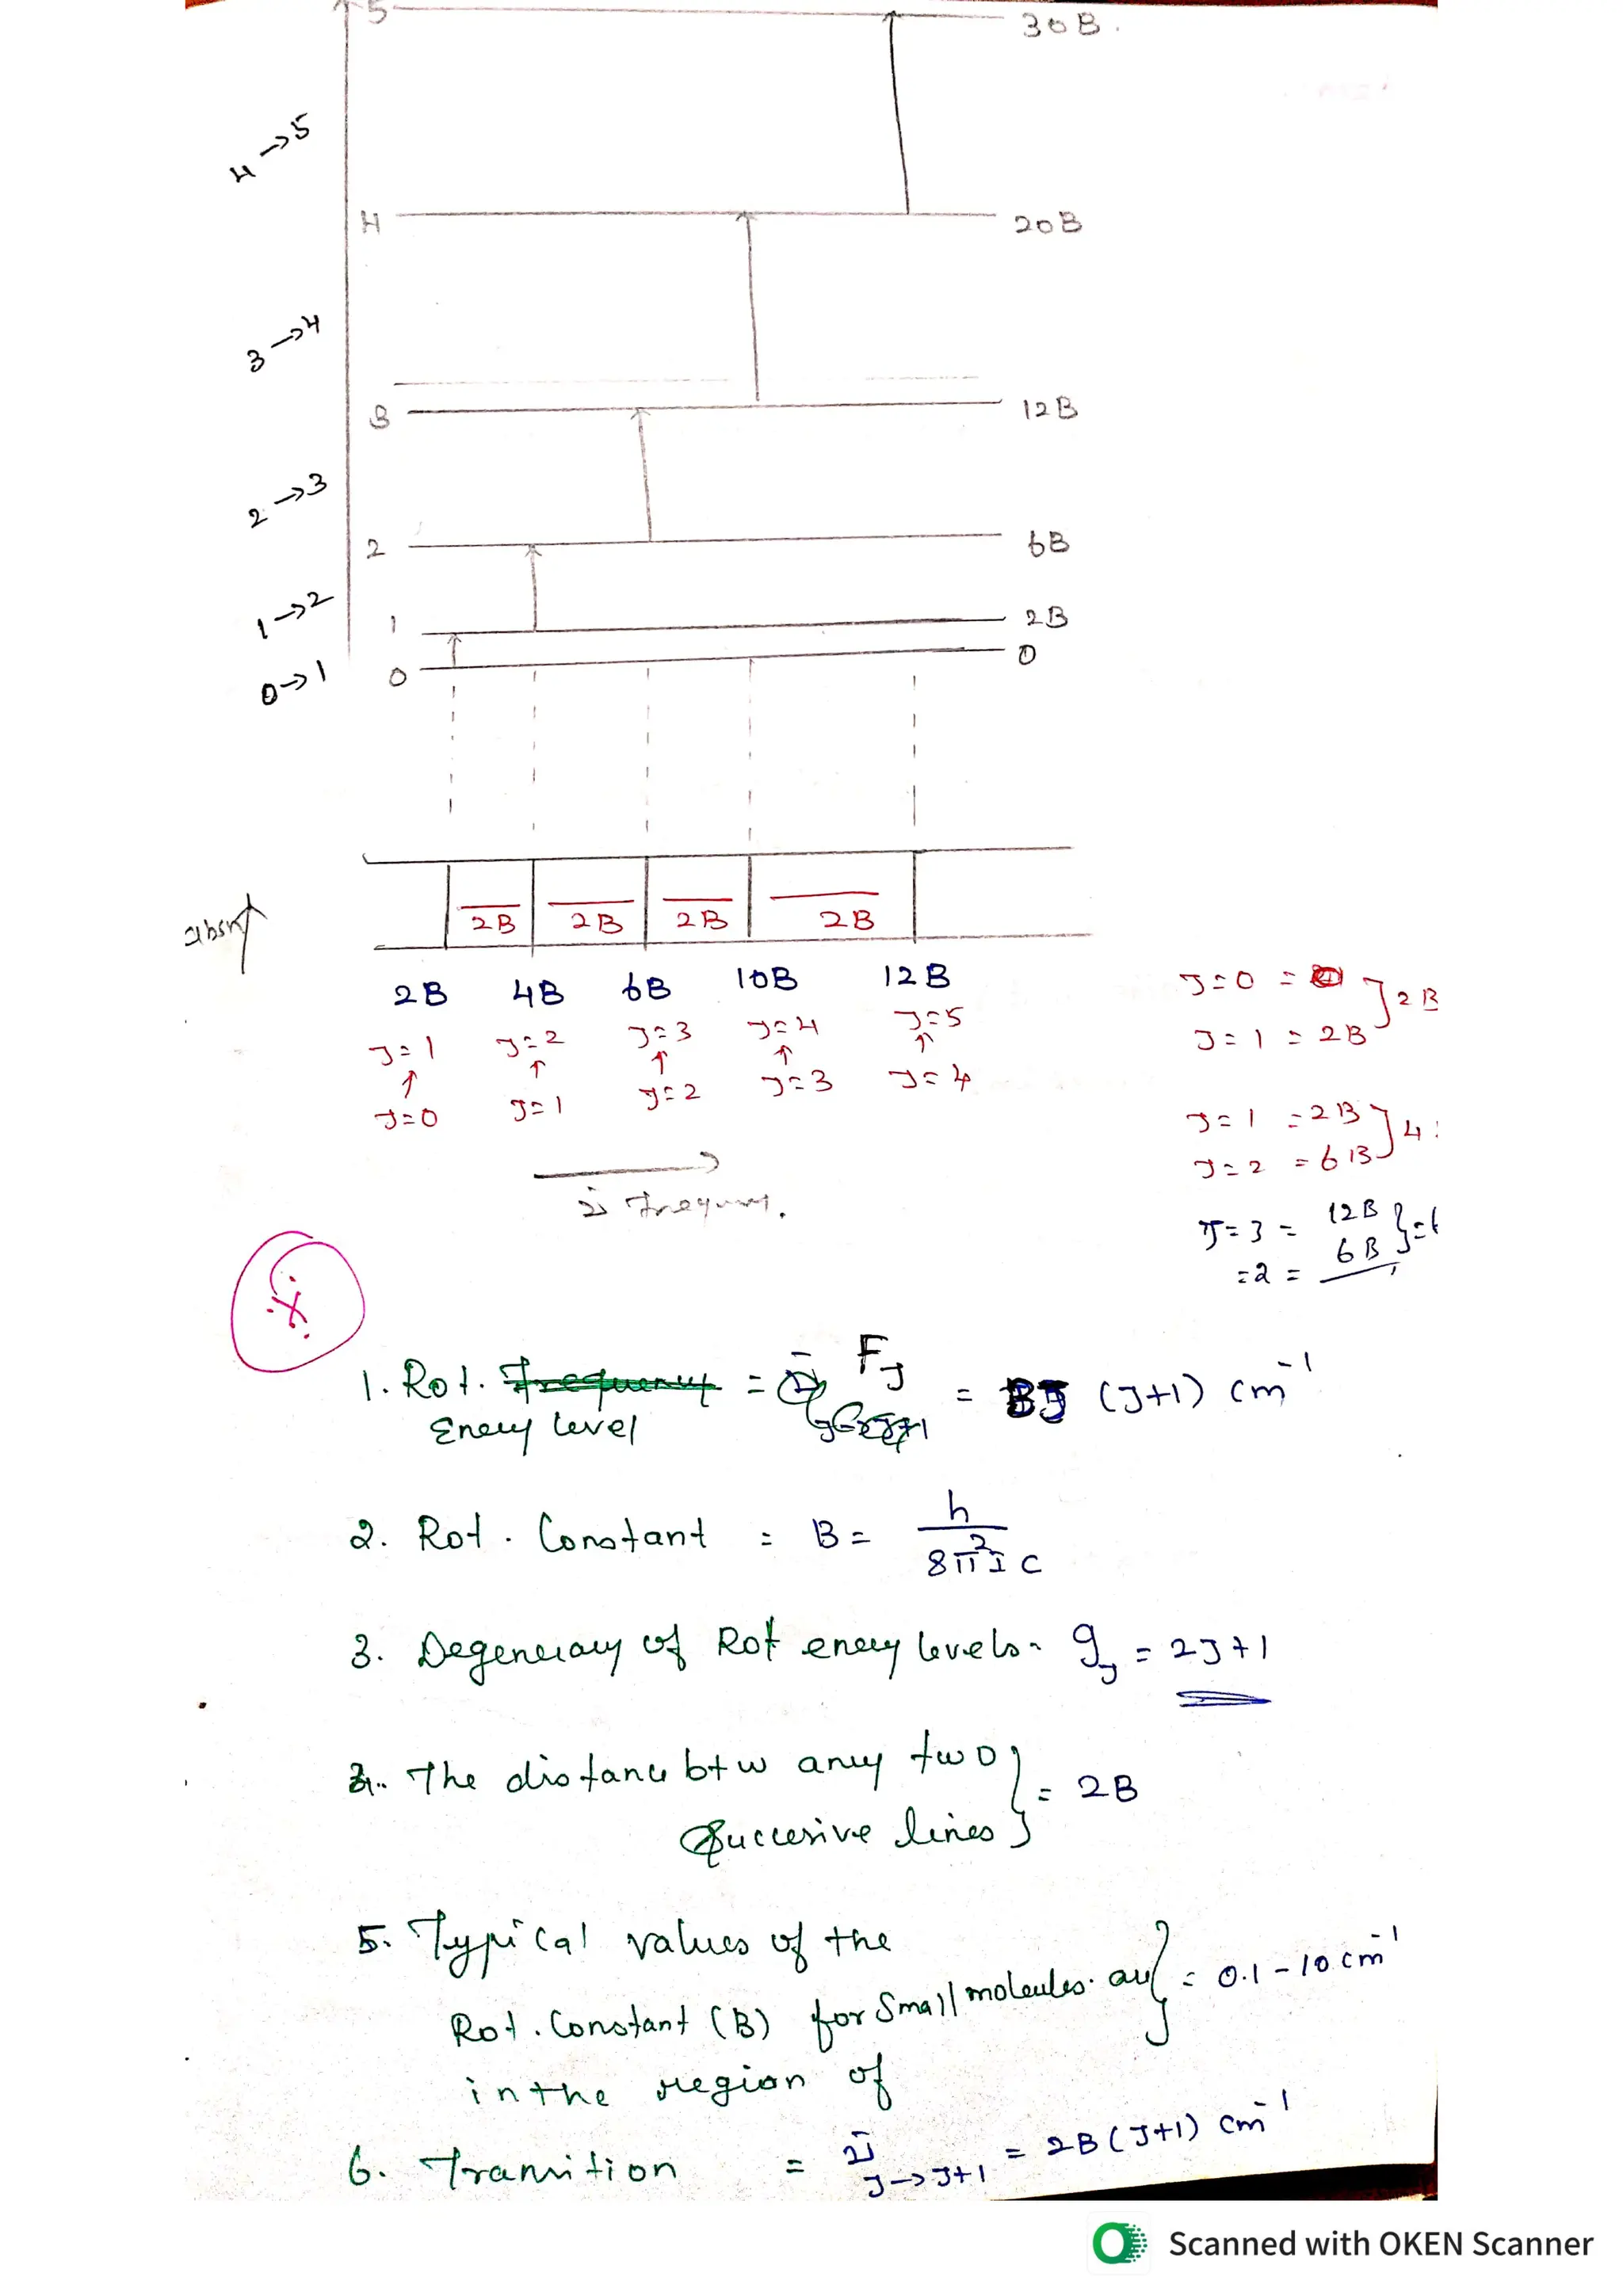 5 30B.
4→5
4 20B
3→4
3 12B
2→3
2 6B
1→2
1 2B
0→1 0 0
absn
2B 2B 2B 2B
2B 4B 6B 10B 12B
J=1 J=2 J=3 J=4 J=5
↑ ↑ ↑ ↑ ↑
J=0 J=1 J=2 J=3 J=4
J=0 =
J=1 = 2B } 2B
J=1 = 2B
J=2 = 6B } 4
J=3 = 12B
=2 = 6B } =6
1. Rot. Frequency = F_J = BJ (J+1) cm⁻¹
Enery level
2. Rot. Constant = B = h / 8π²Ic
3. Degeneracy of Rot enery levels = g_J = 2J+1
4. The distance btw any two
Succesive lines } = 2B
5. Typical values of the
Rot. Constant (B) for Small molecules are } = 0.1 - 10 cm⁻¹
in the region of
6. Transition = ν̄ J→J+1 = 2B(J+1) cm⁻¹
Scanned with OKEN Scanner